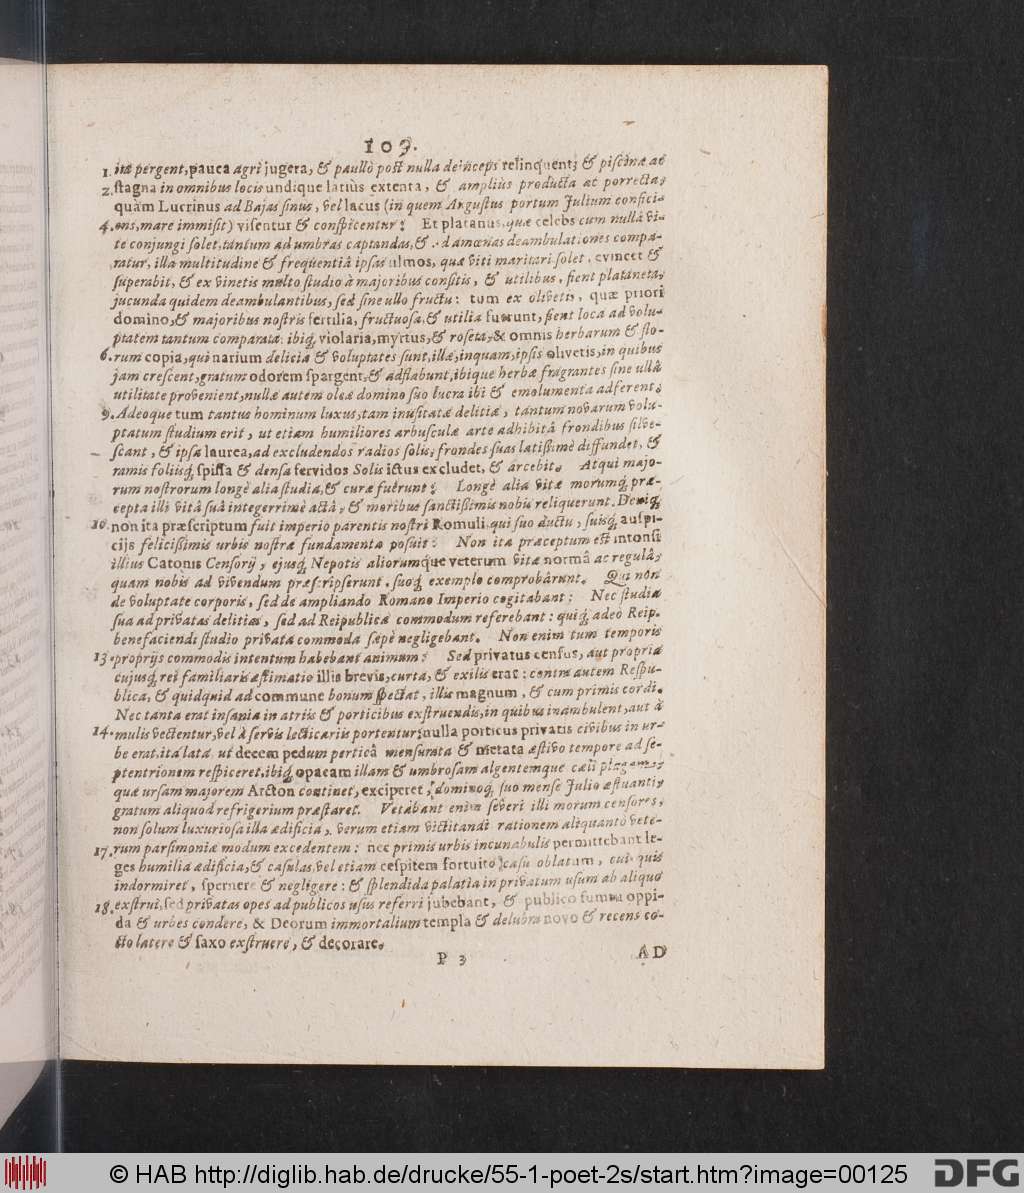 109.
1. ita pergent, pauca agri jugera, & paullò post nulla deinceps relinquent; & piscinæ ac
2. stagna in omnibus locis undique latiùs extenta, & ampliùs producta ac porrecta,
quàm Lucrinus ad Bajas sinus, vel lacus (in quem Augustus portum Julium confici-
4. ens, mare immisit) visentur & conspicientur: Et platanus, quæ celebs cum nulla vi-
te conjungi solet, tantum ad umbras captandas, & ad amœnas deambulationes compa-
ratur, illa multitudine & frequentiâ ipsas ulmos, quæ viti maritari solet, evincet &
superabit, & ex vinetis multo studio à majoribus consitis, & utilibus, fient plataneta,
jucunda quidem deambulantibus, sed sine ullo fructu: tum ex olivetis, quæ priori
domino, & majoribus nostris fertilia, fructuosa, & utilia fuerunt, fient loca ad volu-
ptatem tantum comparata: ibiq́; violaria, myrtus, & roseta, & omnis herbarum & flo-
6. rum copia, qui narium deliciæ & voluptates sunt, illæ, inquam, ipsis olivetis, in quibus
jam crescent, gratum odorem spargent, & adflabunt, ibique herbæ fragrantes sine ullâ
utilitate provenient, nullæ autem oleæ domino suo lucra ibi & emolumenta adferent.
9. Adeoque tum tantus hominum luxus, tam inusitatæ delitiæ, tantum novarum volu-
ptatum studium erit, ut etiam humiliores arbusculæ arte adhibitâ frondibus silve-
scant, & ipsa laurea, ad excludendos radios solis, frondes suas latißimè diffundet, &
ramis foliisq́; spissa & densa fervidos Solis ictus excludet, & arcebit. Atqui majo-
rum nostrorum longè alia studia, & curæ fuêrunt: Longè alia vitæ morumq́; præ-
cepta illi vitâ suâ integerrimè actâ, & moribus sanctißimis nobis reliquerunt. Deniq́;
10. non ita præscriptum fuit imperio parentis nostri Romuli, qui suo ductu, suisq́; auspi-
cijs felicißimis urbis nostræ fundamenta posuit: Non ita præceptum est intonsi
illius Catonis Censorij, ejusq́; Nepotis aliorumque veterum vitæ normâ ac regulâ,
quam nobis ad vivendum præscripserunt, suoq́; exemplo comprobârunt. Qui non
de voluptate corporis, sed de ampliando Romano Imperio cogitabant: Nec studia
sua ad privatas delitias, sed ad Reipublicæ commodum referebant: quiq́; adeò Reip.
benefaciendi studio privata commoda sæpè negligebant. Non enim tum temporis
13. proprijs commodis intentum habebant animum: Sed privatus census, aut propria
cujusq́; rei familiaris æstimatio illis brevis, curta, & exilis erat: contra autem Respu-
blica, & quidquid ad commune bonum spectat, illis magnum, & cum primis cordi.
Nec tanta erat insania in atriis & porticibus exstruendis, in quibus inambulent, aut à
14. mulis vectentur, vel à servis lecticariis portentur: nulla porticus privatis civibus in ur-
be erat, ita lata, ut decem pedum perticâ mensurata & metata æstivo tempore ad se-
ptentrionem respiceret, ibiq́; opacam illam & umbrosam algentemque cæli plagam,
quæ ursam majorem Arcton continet, exciperet, dominoq́; suo mense Julio æstuanti,
gratum aliquod refrigerium præstaret. Vetabant enim severi illi morum censores,
non solum luxuriosa illa ædificia, verum etiam victitandi rationem aliquantò vete-
rum parsimoniæ modum excedentem: nec primis urbis incunabulis permittebant le-
17. ges humilia ædificia, & casulas, vel etiam cespitem fortuito casu oblatum, cui quis
indormiret, spernere & negligere: & splendida palatia in privatum usum ab aliquo
18. exstrui, sed privatas opes ad publicos usus referri jubebant, & publico sumtu oppi-
da & urbes condere, & Deorum immortalium templa & delubra novo & recens co-
cto latere & saxo exstruere, & decorare.
P 3
AD
© HAB http://diglib.hab.de/drucke/55-1-poet-2s/start.htm?image=00125
DFG